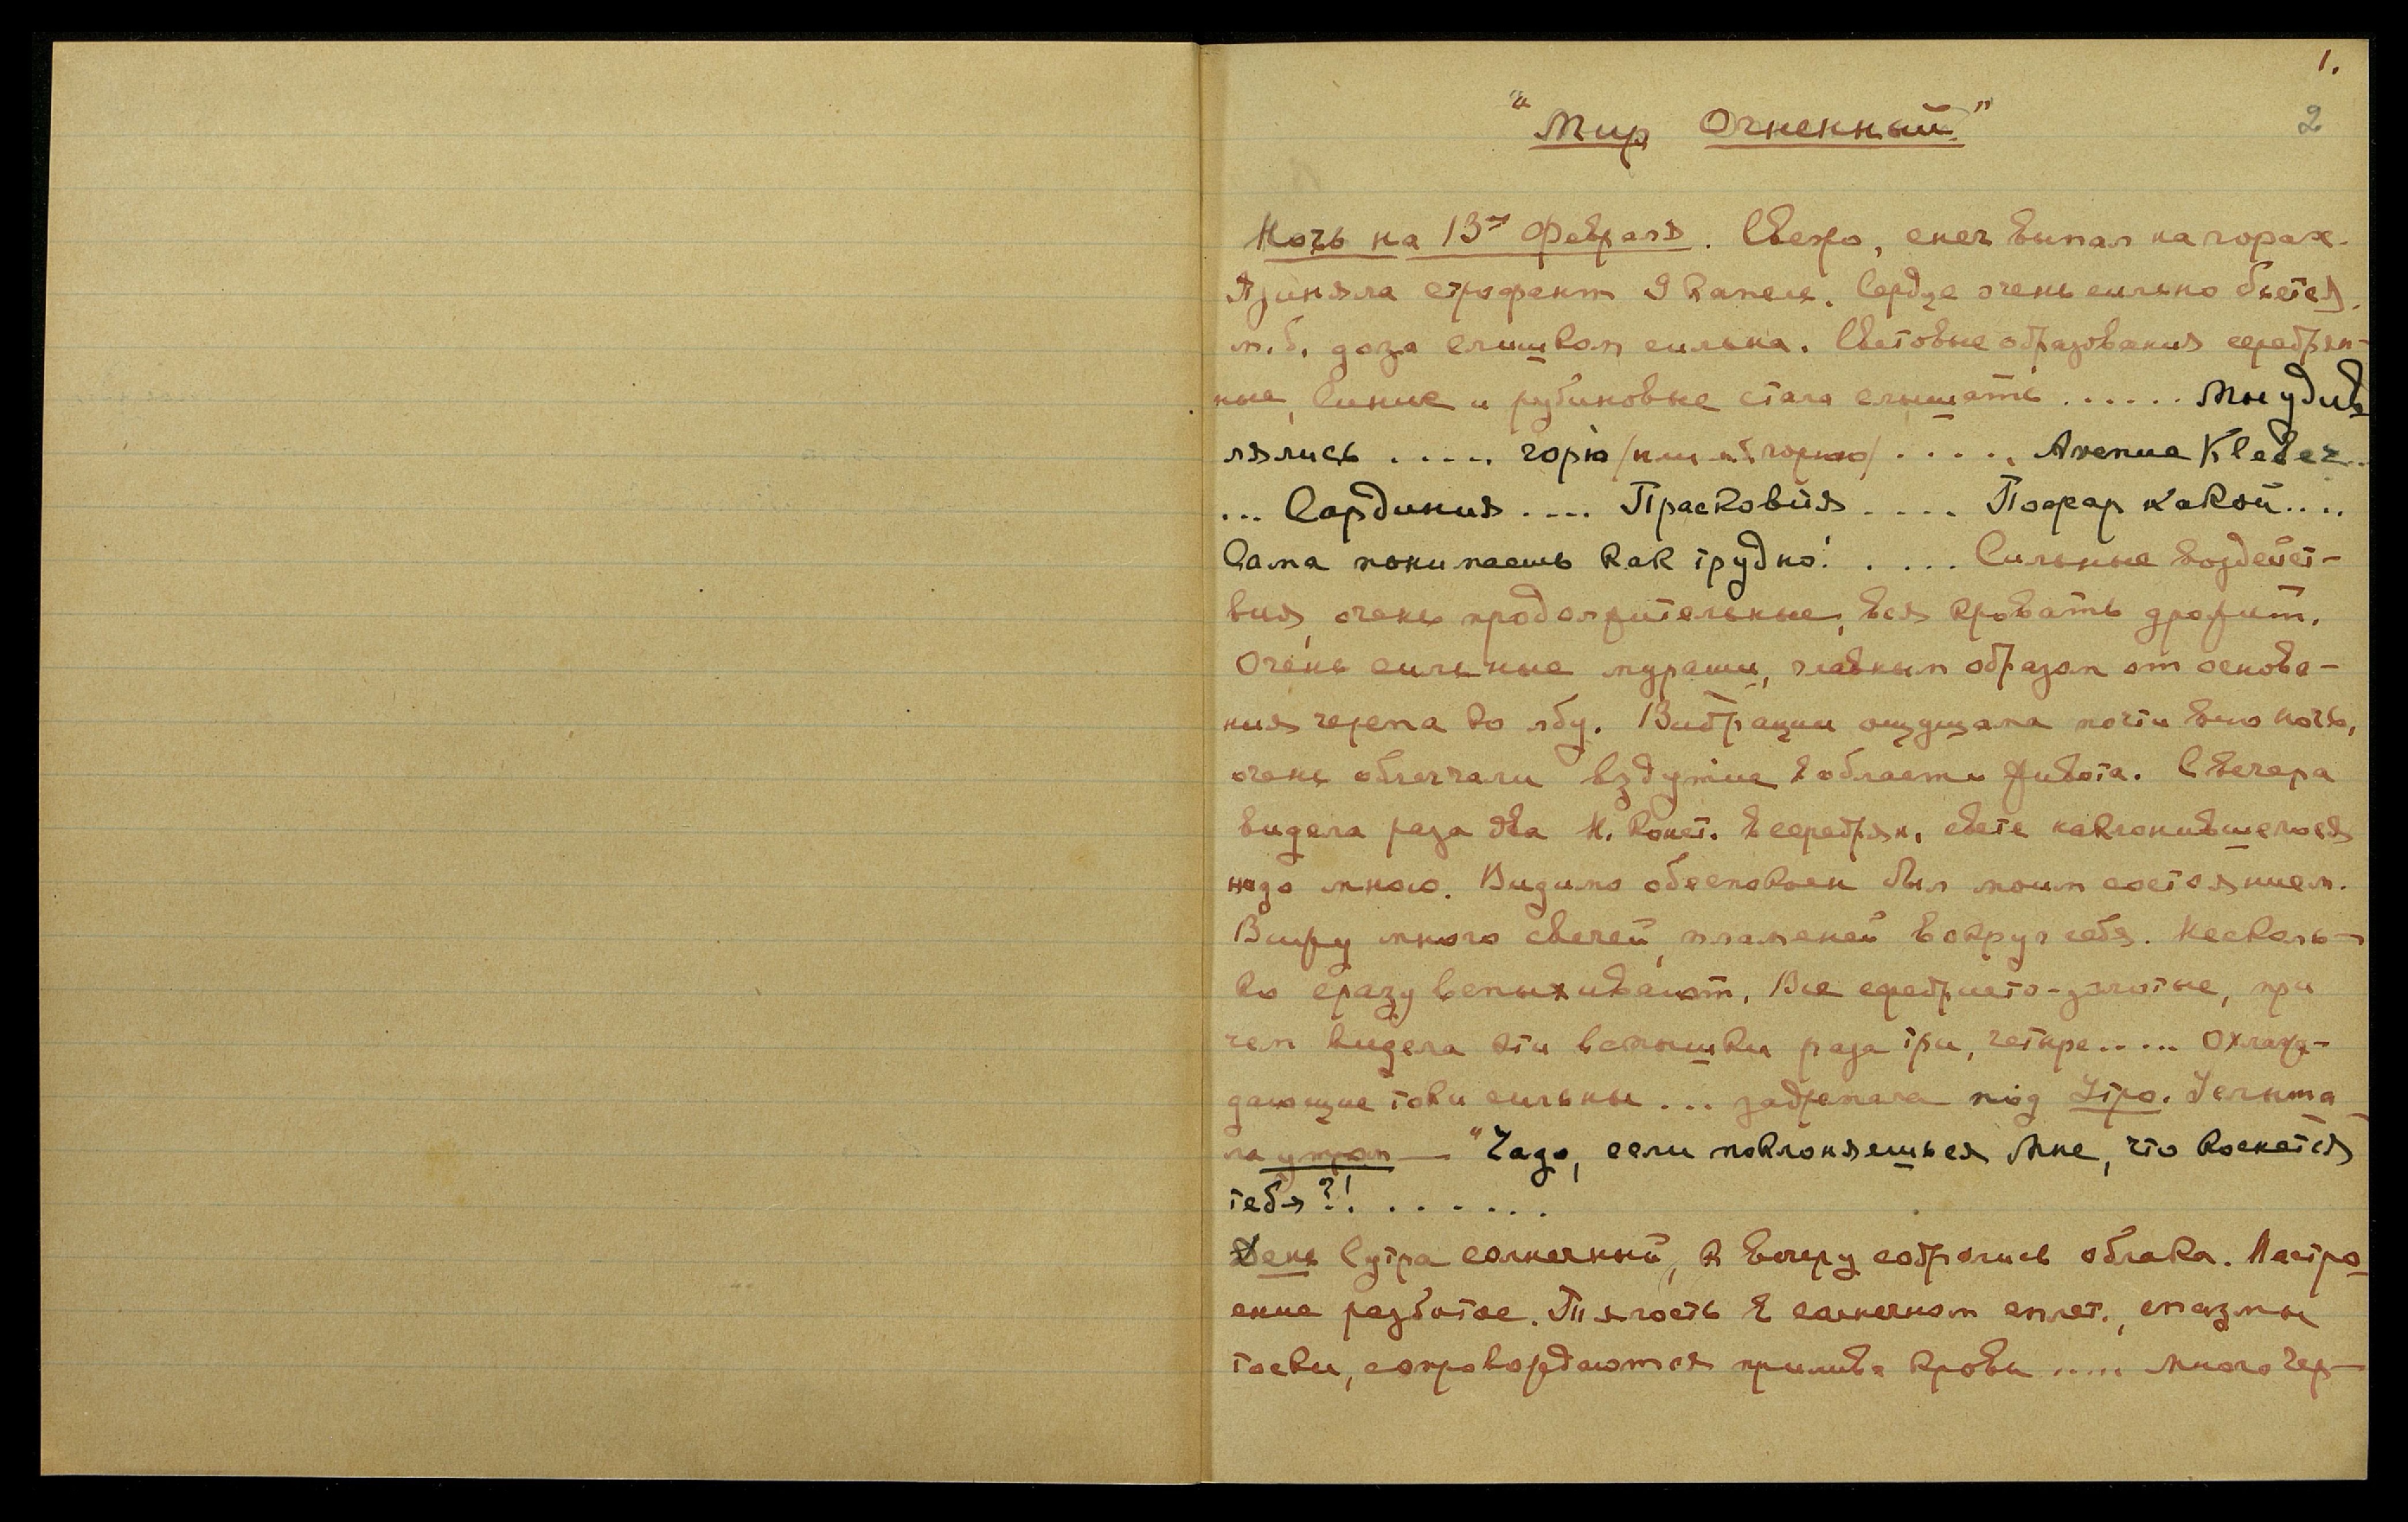 1.
2
"Мир Огненный"
Ночь на 13ое Февраля. Свежо, снег выпал на горах.
Приняла строфант 9 капель. Сердце очень сильно бьется,
м.б. доза слишком сильна. Световые образования серебрян-
ные, синие и рубиновые стала слышать ...... Мы удив
лялись ..... горю /или к горню/ ..... Avenue Kleber..
... Сардиния .... Прасковия .... Пожар какой....
Сама понимаешь как трудно! .... Сильные воздейст-
вия, очень продолжительные, вся кровать дрожит.
Очень сильные мураши, главным образом от основа-
ния черепа ко лбу. Вибрации ощущала почти всю ночь,
очень облегчали вздутие в области живота. С вечера
видела раза два Н. Конст. в серебрян. свете наклонившегося
надо мною. Видимо обеспокоен был моим состоянием.
Вижу много свечей, пламеней вокруг себя. Несколь-
ко сразу вспыхивают. Все серебристо-золотые, при
чем видела эти вспышки раза три, четыре ..... Охлаж-
дающие токи сильны ... задремала под Утро. Услыша
ла утром — "Чадо, если поклоняешься Мне, что коснется
тебя?! ......
День С утра солнечный, к вечеру собрались облака. Настро
ение разбитое. Тягость в солнечном сплет., спазмы
тоски, сопровождаются прилив. крови ..... Много чер-